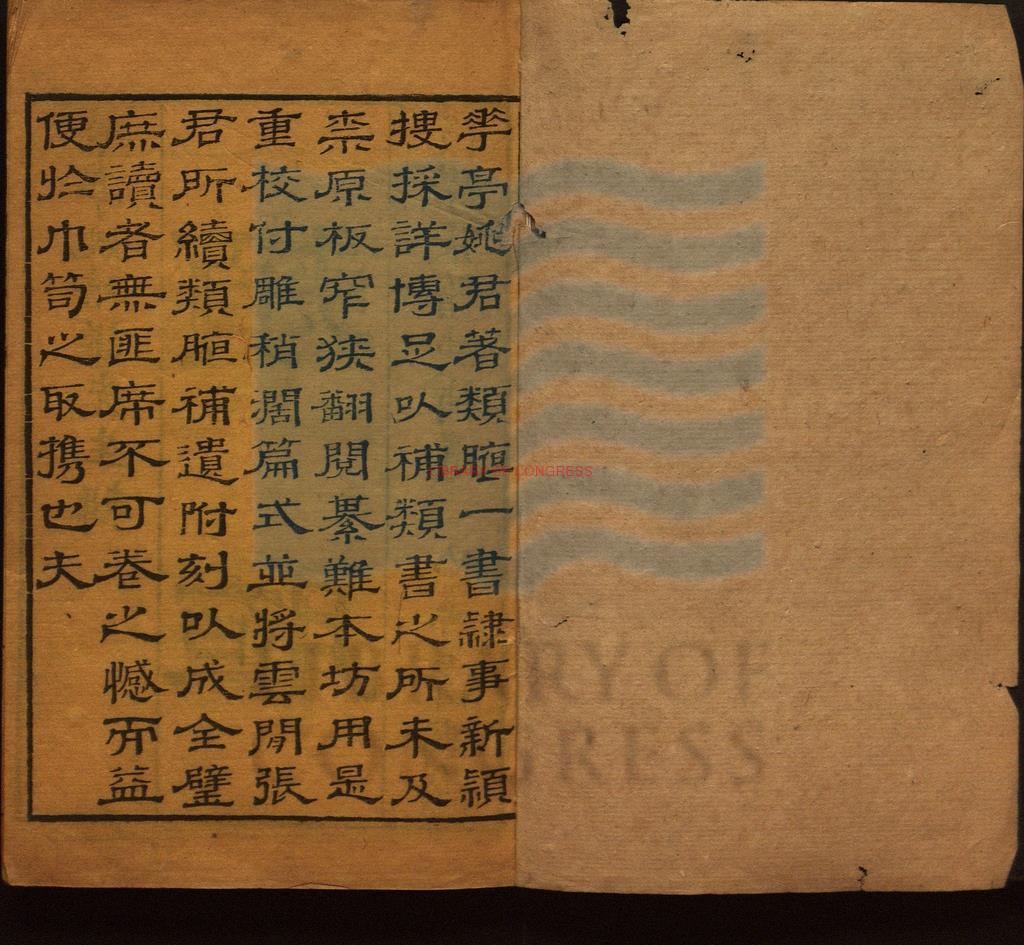 華亭姚君著類腋一書隸事新穎
搜採詳博足㕥補類書之所未及
柰原板窄狹翻閱綦難本坊用是
重校付雕稍濶篇式並將雲間張
君所續類腋補遺附刻㕥成全璧
庶讀者無匪席不可卷之憾而益
便於巾笥之取携也夫
LIBRARY OF CONGRESS